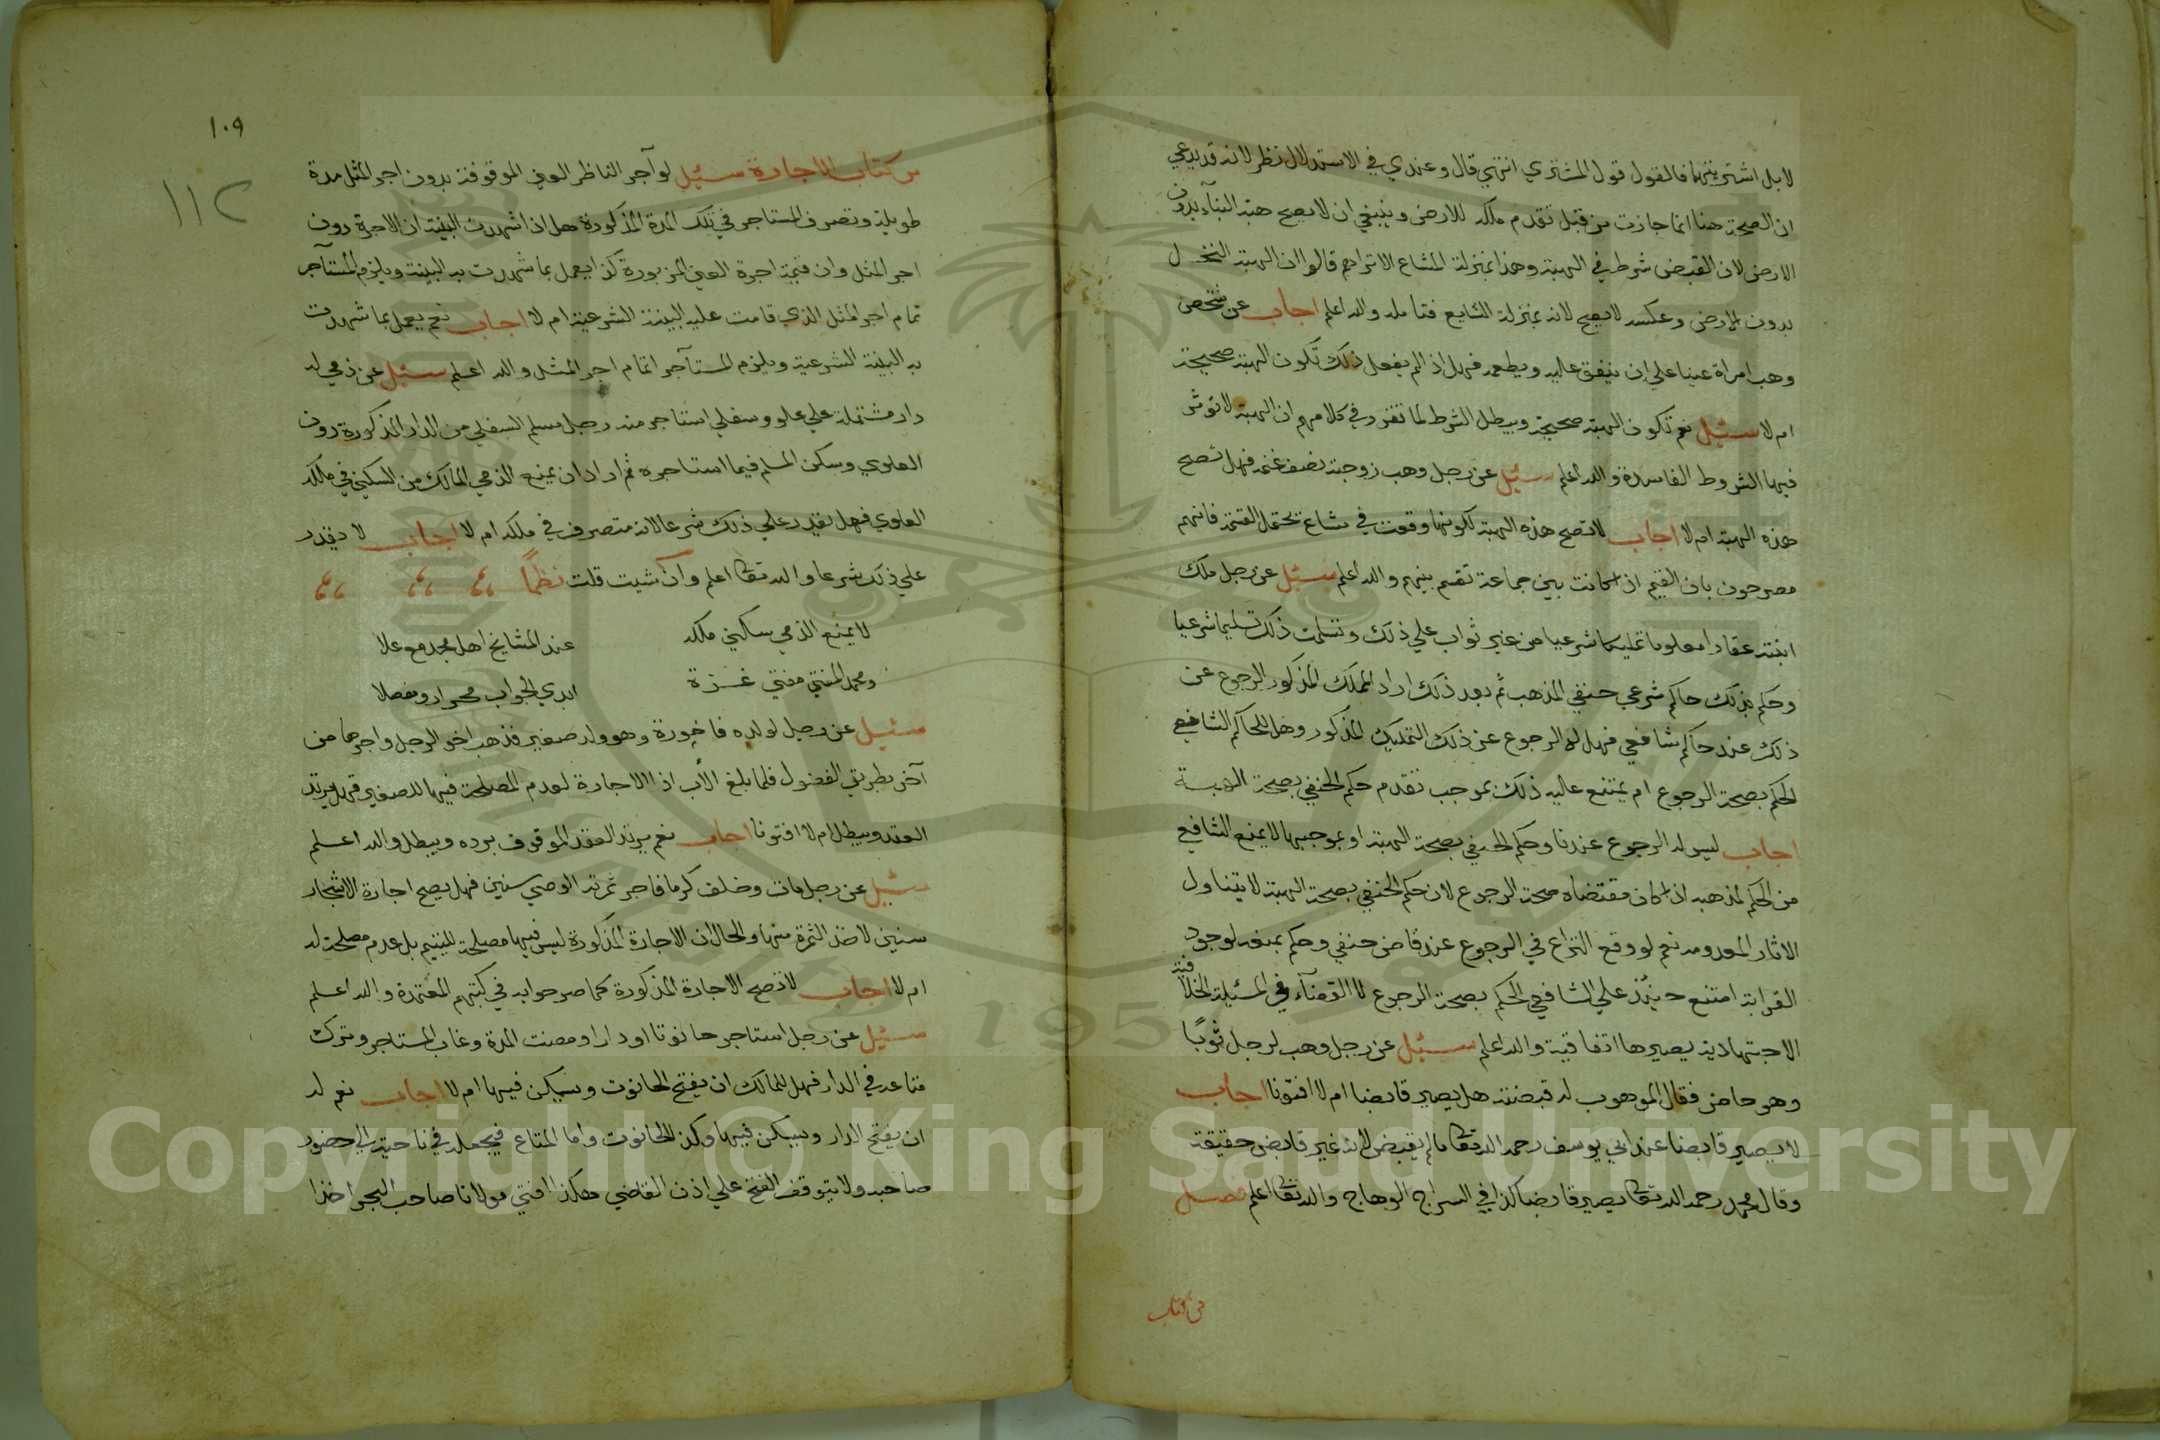 لا بل اشتريتهما فالقول قول المشتري انتهي قال وعندي في الاستدلال نظر لانه قد يدعي
ان الصحة هنا انما جازت من قبل تقدم ملكه للارض وينبغي ان لا يصح هبة البنآء بدون
الارض لان القبض شرط في الهبة وهذا بمنزلة المشاع الا تراهم قالوا ان الهبة النخل
بدون الارض وعكسه لا يصح لانه بمنزلة الشايع فتامله والله اعلم اجاب عن شخص
وهب امراة عينا علي ان ينفق عليه ويطعمه فهل اذا لم يفعل ذلك تكون الهبة صحيحة
ام لا سئيل نعم تكون الهبة صحيحة ويبطل الشرط لما تقرر في كلامهم ان الهبة لا توثر
فيها الشروط الفاسدة والله اعلم سئيل عن رجل وهب زوجته نصف غنمه فهل تصح
هذه الهبة ام لا اجاب لا تصح هذه الهبة لكونها وقعت في مشاع يحتمل القسمة فانهم
مصرحون بان الغنم اذا كانت بين جماعة تقسم بينهم والله اعلم سئيل عن رجل ملك
ابنته عقارا معلوما تمليكا شرعيا من غير ثواب علي ذلك وتسلمت ذلك تسليما شرعيا
وحكم بذلك حاكم شرعي حنفي المذهب ثم بعد ذلك اراد المملك المذكور الرجوع عن
ذلك عند حاكم شافعي فهل له الرجوع عن ذلك التمليك المذكور وهل للحاكم الشافعي
الحكم بصحة الرجوع ام يمتنع عليه ذلك بموجب تقدم حكم الحنفي بصحة الهبة
اجاب ليس له الرجوع عندنا وحكم الحنفي بصحة الهبة او بموجبها لا يمنع الشافعي
من الحكم لمذهبه اذا كان مقتضاه صحة الرجوع لان حكم الحنفي بصحة الهبة لا يتناول
الاثار المعدومه نعم لو وقع النزاع في الرجوع عند قاض حنفي وحكم بمنعه لوجود
القرابة امتنع حينئذ علي الشافعي الحكم بصحة الرجوع لا القضآء في المسئلة الخلافية
الاجتهادية يصيرها اتفاقية والله اعلم سئيل عن رجل وهب لرجل ثوبًا
وهو حاضر فقال الموهوب له قبضته هل يصير قابضا ام لا افتونا اجاب
لا يصير قابضا عند ابي يوسف رحمه الله تعا ما لم يقبض لانه غير قابض حقيقة
وقال محمد رحمه الله تعا يصير قابضا كذا في السراج الوهاج والله تعا اعلم فصل
من كتاب
١٠٩
١١٢
من كتاب الاجارة سئيل لو آجر الناظر العين الموقوفة بدون اجر المثل مدة
طويلة وتصرف المستاجر في تلك المدة المذكورة هل اذا شهدت البينة ان الاجرة دون
اجر المثل وان قيمة اجرة العين المزبورة كذا يعمل بما شهدت به البينة ويلزم المستآجر
تمام اجر المثل الذي قامت عليه البينة الشرعية ام لا اجاب نعم يعمل بما شهدت
به البينة الشرعية ويلزم المستآجر اتمام اجر المثل والله اعلم سئيل عن ذمي له
دار مشتملة علي علو وسفلي استاجر منه رجل مسلم السفلي من الدار المذكورة دون
العلوي وسكن المسلم فيما استاجره ثم اراد ان يمنع الذمي المالك من السكني في ملكه
العلوي فهل يقدر علي ذلك شرعا لانه متصرف في ملكه ام لا اجاب لا يقدر
علي ذلك شرعا والله تعا اعلم وان شيت قلت نظمًا
لا يمنع الذمي سكني ملكه عند المشايخ اهل مجد مع علا
ومحمد المفتي مفتي غزة ابدي الجواب محررا ومفصلا
سئيل عن رجل لولده فاخورة وهو ولد صغير فذهب اخو الرجل واجرها من
آخر بطريق الفضول فلما بلغ الآب اذ الاجارة لعدم المصلحة فيها للصغير فهل يرتد
العقد ويبطل ام لا افتونا اجاب نعم يرتد العقد الموقوف برده ويبطل والله اعلم
سئيل عن رجل مات وخلف كرما فاجر ثمرته الوصي سنين فهل يصح اجارة الاشجار
سنين لاخذ الثمرة منها والحال ان الاجارة المذكورة ليس فيها مصلحة لليتيم بل عدم مصلحة له
ام لا اجاب لا تصح الاجارة المذكورة كما صرحوا به في كتبهم المعتمدة والله اعلم
سئيل عن رجل استاجر حانوتا او دارا ومضت المدة وغاب المستاجر وترك
متاعه في الدار فهل للمالك ان يفتح الحانوت ويسكن فيها ام لا اجاب نعم له
ان يفتح الدار ويسكن فيها وكذا الحانوت واما المتاع فيجعله في ناحية الي حضور
صاحبه ولا يتوقف الفتح علي اذن القاضي هكذا افتي مولانا صاحب البحر اخذا
Copyright © King Saud University
195